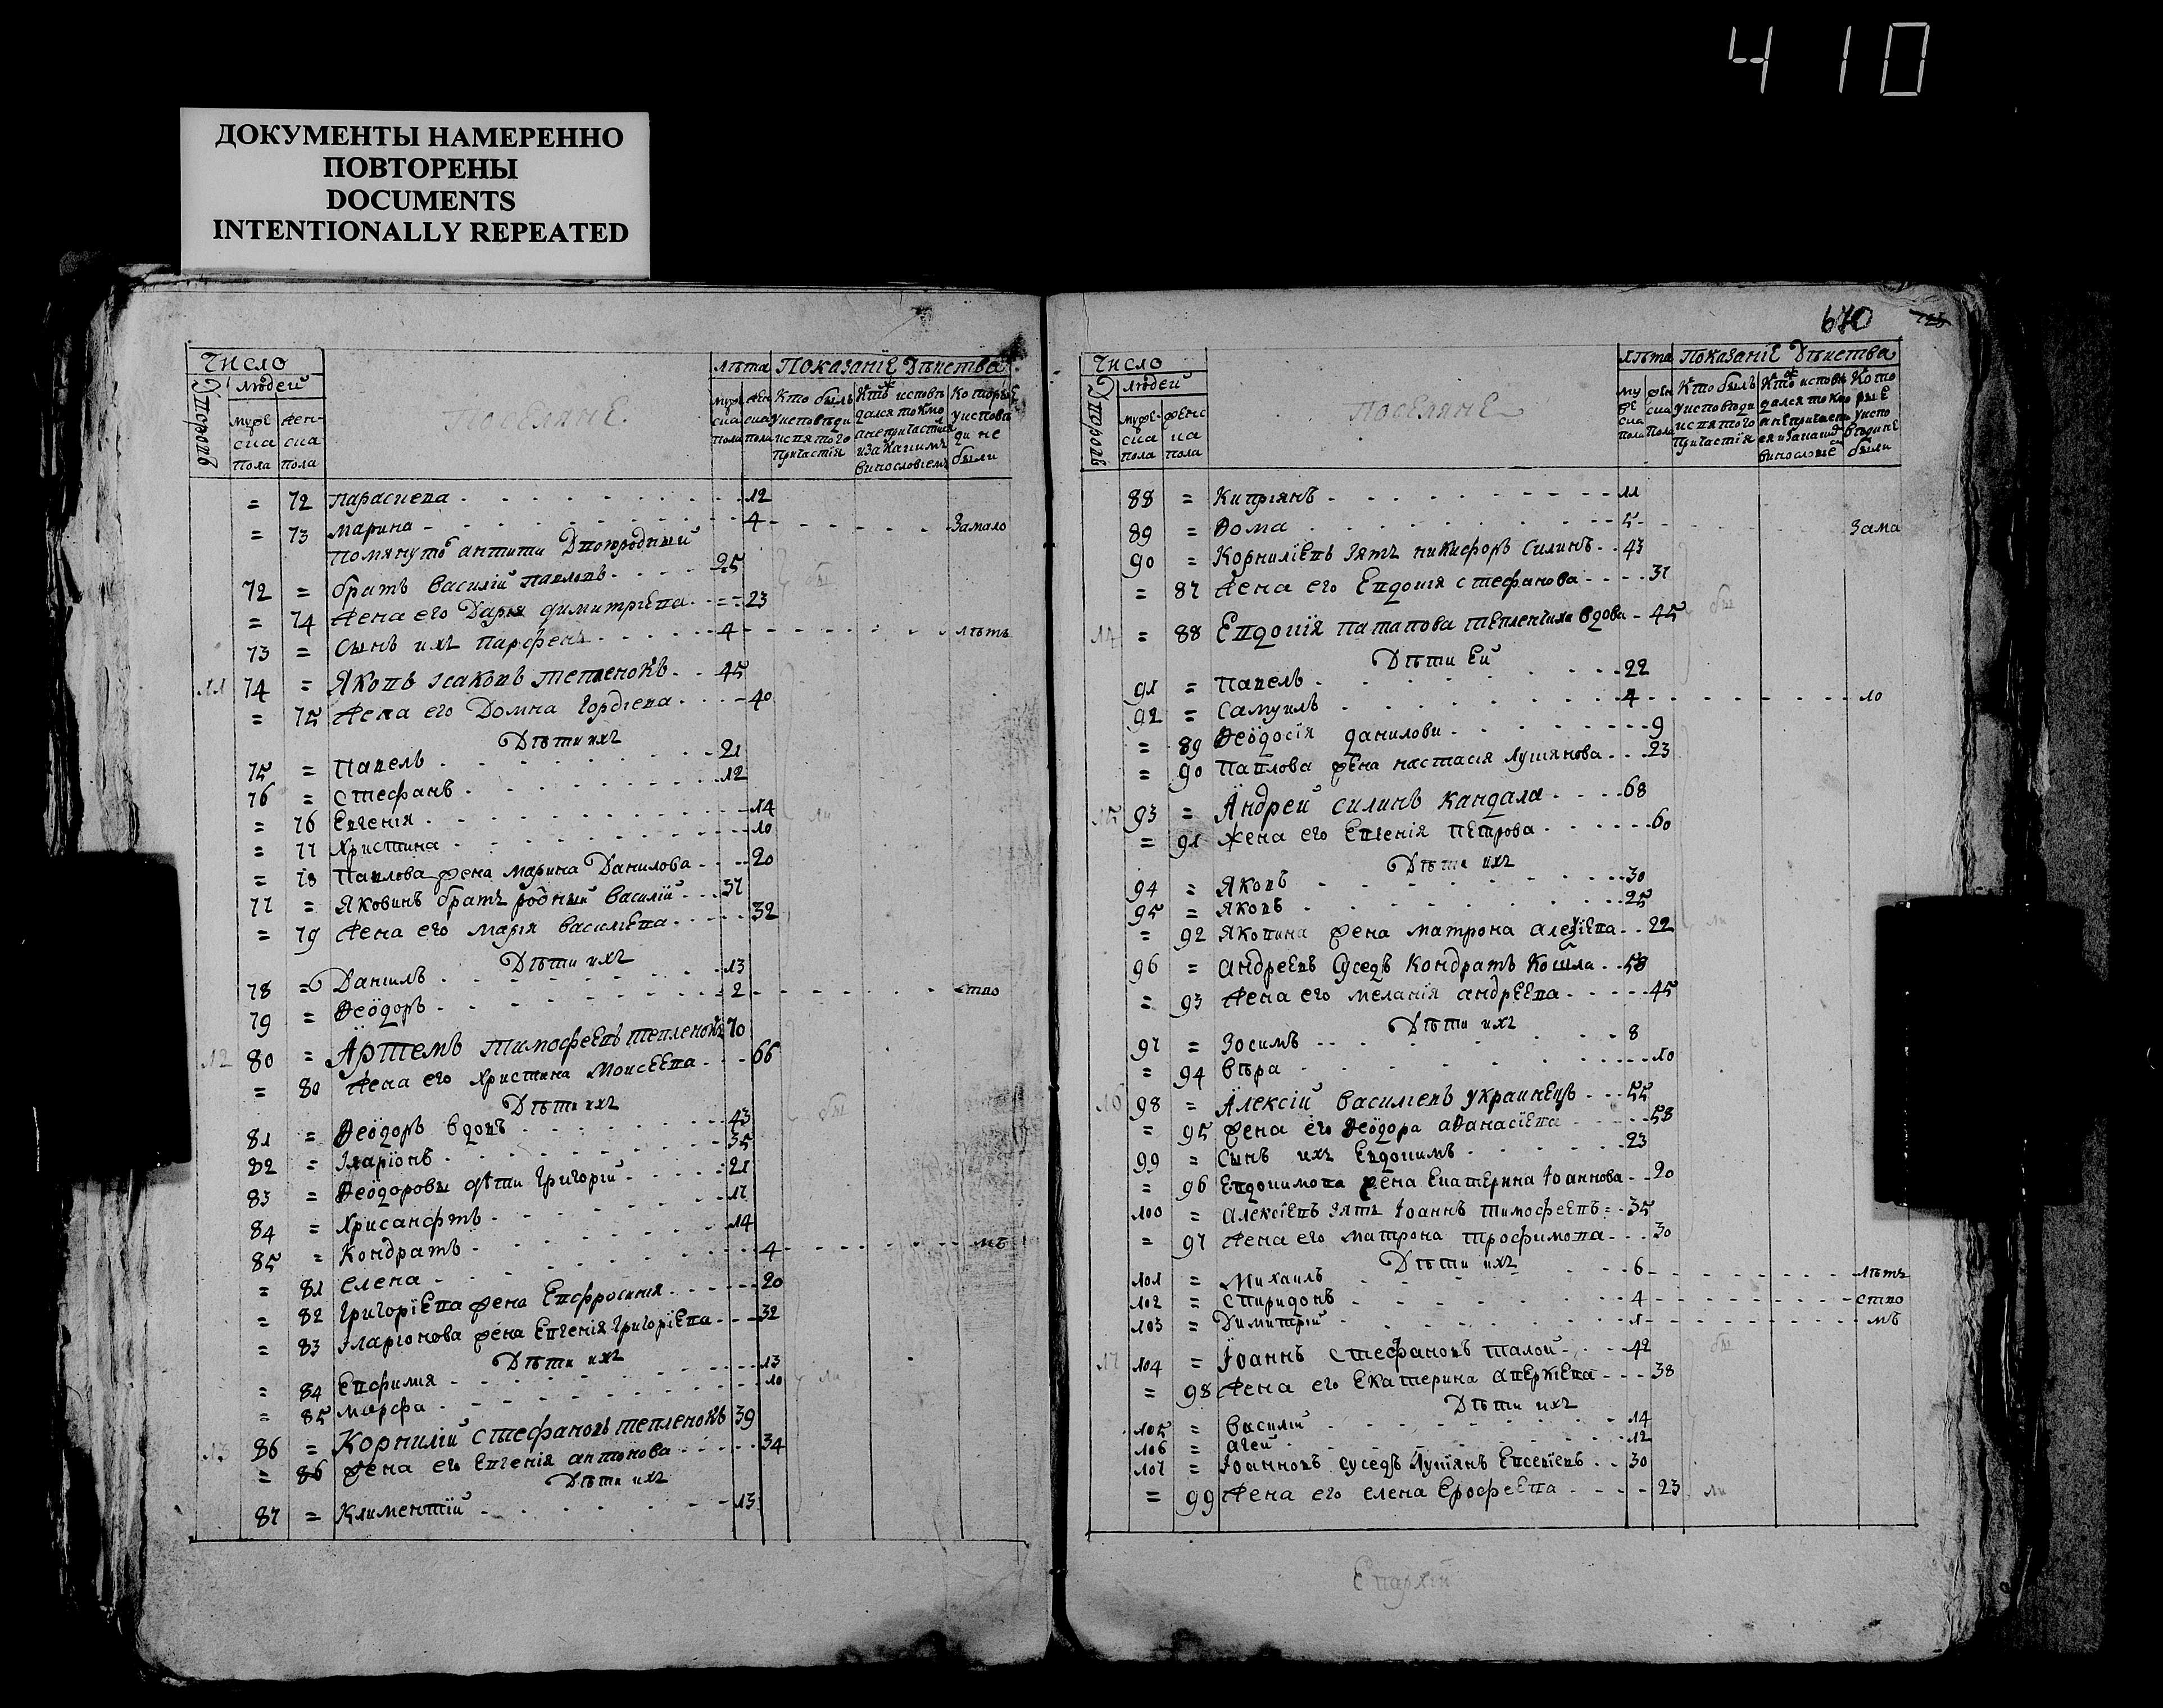 4 10
ДОКУМЕНТЫ НАМЕРЕННО
ПОВТОРЕНЫ
DOCUMENTS
INTENTIONALLY REPEATED
Число
Людей
Лѣта Показаніе Дѣиства
Поселяне
= 72 Параскева 12
= 73 Марина 4 Замало
Помянутѡ антипи Двоюродный
72 = братъ Василій Павловъ 25 бы
= 74 Жена его Дарія Димитріева 23
73 = Сынъ ихъ Парфенъ 4 лѣтъ
11 74 = Яковъ Исаковъ Тепленокъ 45
= 75 Жена его Домна Гордіева 40
Дѣти ихъ
75 = Павелъ 21
76 = Стефанъ 12
= 76 Евгенія 14 ли
= 77 Христина 10
= 78 Павлова жена Марина Данилова 20
77 = Яковинъ братъ родный Василій 37
= 79 Жена его Марія Василіева 32
Дѣти ихъ
78 = Данилъ 13
79 = Ѳеодоръ 2 ство
12 80 = Артемъ Тимофеевъ Тепленокъ 70
= 80 Жена его Христина Моисеева 66
Дѣти ихъ бы
81 = Ѳеодоръ вдовъ 43
82 = Іларіонъ 35
83 = Ѳеодоровы дѣти Григорій 21
84 = Хрисанфтъ 17
85 = Кондратъ 14
= 81 Елена 4 мъ
= 82 Григоріева жена Евфросинія 20
= 83 Іларіонова жена Евгенія Григоріева 32
Дѣти ихъ
= 84 Евфимія 13 ли
= 85 Марфа 10
13 86 = Корнилій Стефановъ Тепленокъ 39
= 86 жена его Евгенія антонова 34
Дѣти ихъ
87 = Климентій 13
670
Число
Людей
Лѣта Показаніе Дѣиства
Поселяне
88 = Кипріянъ 11
89 = Ѳома 5 Зама
90 = Корниліевъ зять никифоръ Силинъ 43
= 87 Жена его Евдокія Стефанова 37
14 = 88 Евдокія Патапова Тепленчиха вдова 45 бы
Дѣти Ей
91 = Павелъ 22
92 = Самуилъ 4 ло
= 89 Ѳеодосія данилови 9
= 90 Павлова жена настасія Лукіянова 23
15 93 = Андрей Силинъ Кандала 68
= 91 Жена его Евгенія Петрова 60
Дѣти ихъ
94 = Яковъ 30
95 = Яковъ 25
= 92 Яковина жена Матрона алеѯіева 22 ли
96 = андреевъ Суседъ Кондратъ Кошла 58
= 93 Жена его меланія андреева 45
Дѣти ихъ
97 = Зосимъ 8
= 94 Вѣра 10
16 98 = Алексій Василіевъ украинецъ 55
= 95 жена его Ѳеодора аѳанасіева 58
99 = Сынъ ихъ Евдокимъ 23
= 96 Евдокимова жена Екатерина Іоаннова 20
100 = алексіевъ зять Іоаннъ тимофеевъ 35
= 97 Жена его матрона Трофимова 30
Дѣти ихъ
101 = Михаилъ 6 лѣтъ
102 = Спиридонъ 4 ство
103 = Димитрій 1 мъ
17 104 = Іоаннъ Стефановъ Талой 42 бы
= 98 Жена его Екатерина аверкіева 38
Дѣти ихъ
105 = Василій 14
106 = агей 12
107 = Іоанновъ суседъ Лукіянъ Евсевіевъ 30
= 99 Жена его елена Ерофеева 23 ли
Епархіи